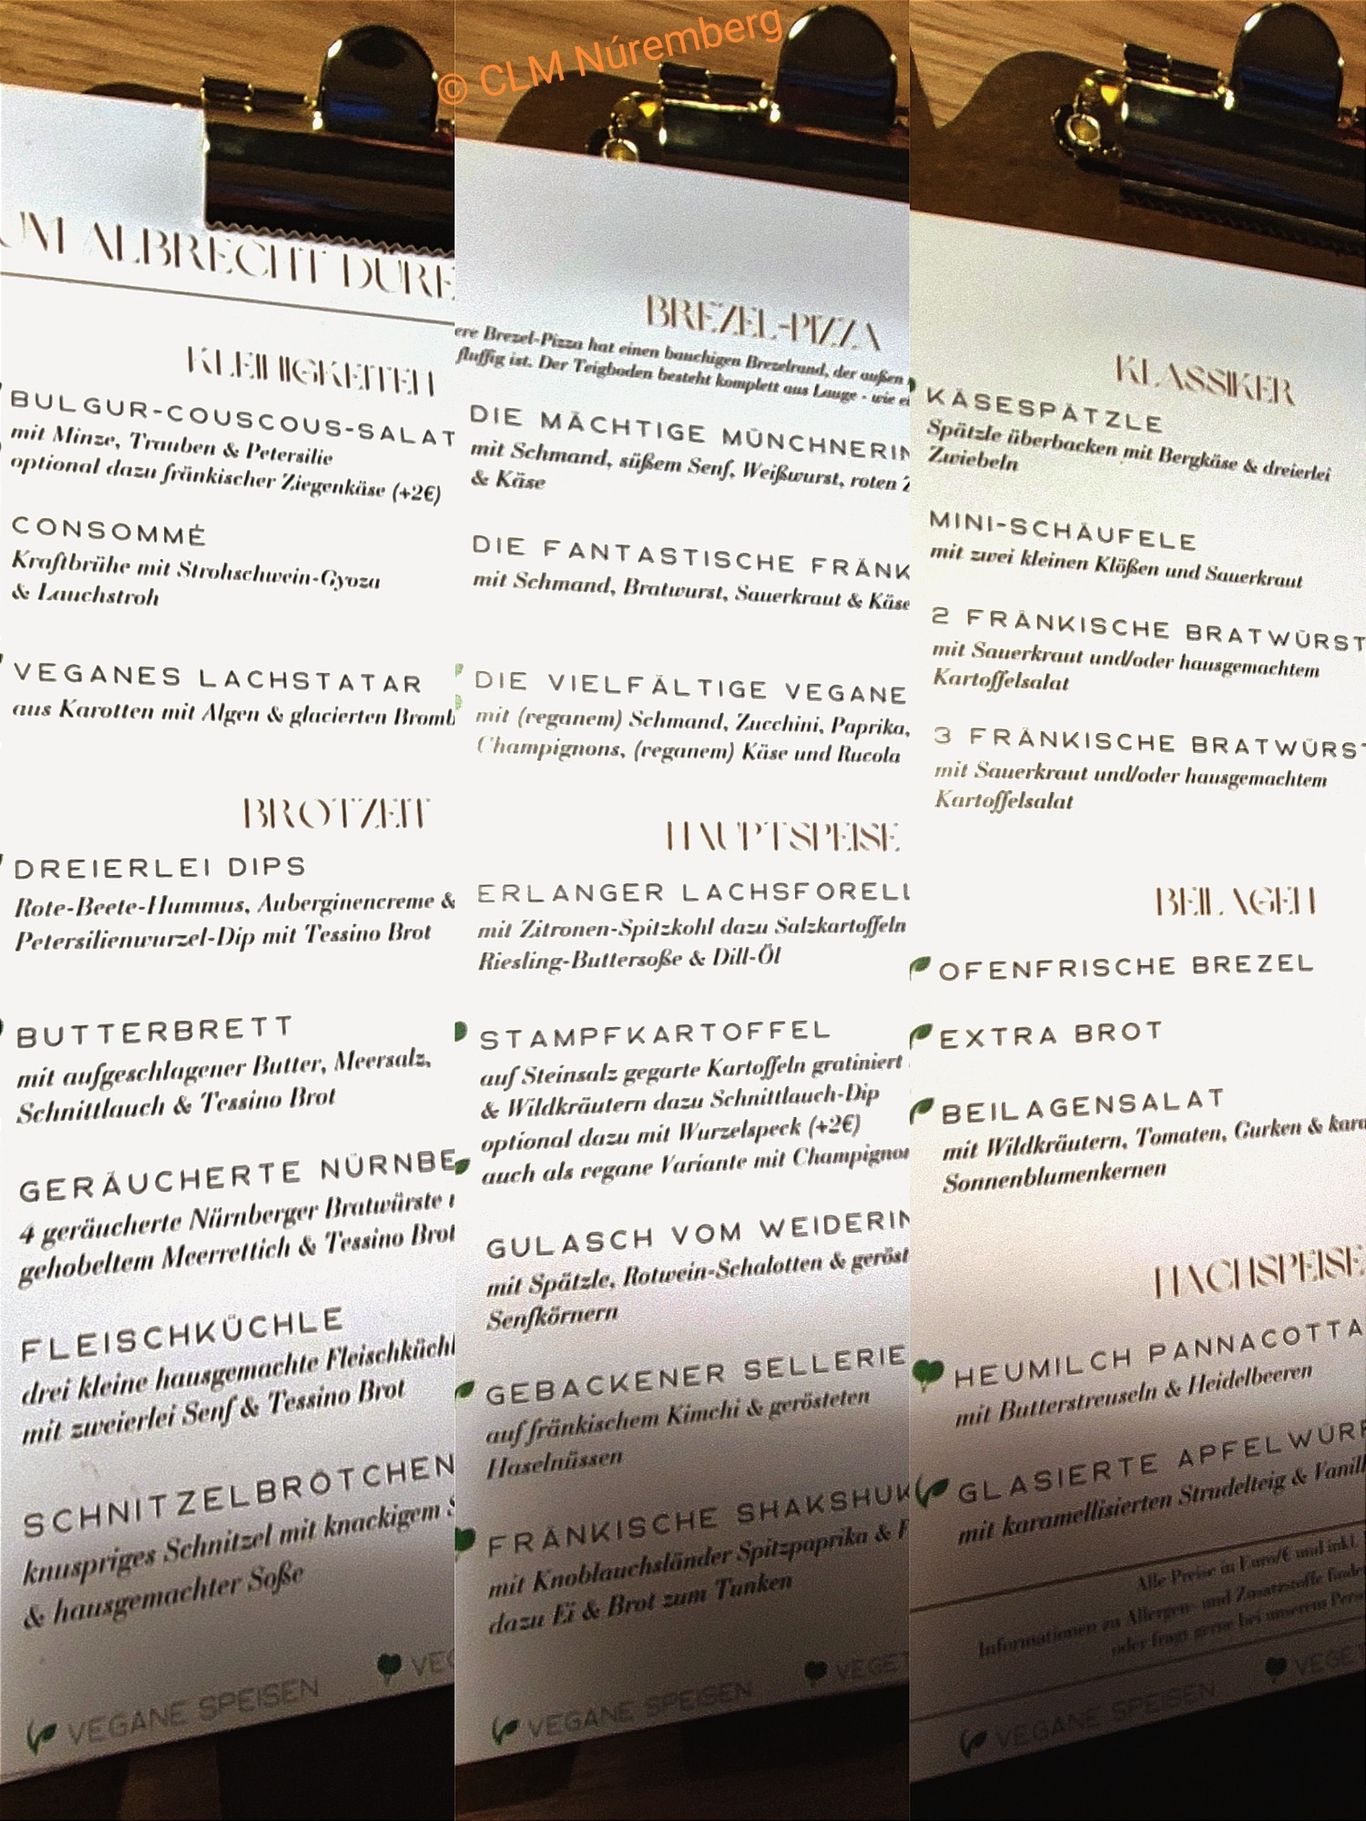 © CLM Núremberg
UM ALBRECHT DÜRE
KLEINIGKEITEN
BULGUR-COUSCOUS-SALAT
mit Minze, Trauben & Petersilie
optional dazu fränkischer Ziegenkäse (+2€)
CONSOMMÉ
Kraftbrühe mit Strohschwein-Gyoza
& Lauchstroh
VEGANES LACHSTATAR
aus Karotten mit Algen & glacierten Bromb
BROTZEIT
DREIERLEI DIPS
Rote-Beete-Hummus, Auberginencreme &
Petersilienwurzel-Dip mit Tessino Brot
BUTTERBRETT
mit aufgeschlagener Butter, Meersalz,
Schnittlauch & Tessino Brot
GERÄUCHERTE NÜRNBE
4 geräucherte Nürnberger Bratwürste
gehobeltem Meerrettich & Tessino Brot
FLEISCHKÜCHLE
drei kleine hausgemachte Fleischküchl
mit zweierlei Senf & Tessino Brot
SCHNITZELBRÖTCHEN
knuspriges Schnitzel mit knackigem S
& hausgemachter Soße
VEGANE SPEISEN VEG
BREZEL-PIZZA
ere Brezel-Pizza hat einen bauchigen Brezelrand, der außen
fluffig ist. Der Teigboden besteht komplett aus Lauge - wie ei
DIE MÄCHTIGE MÜNCHNERIN
mit Schmand, süßem Senf, Weißwurst, roten Z
& Käse
DIE FANTASTISCHE FRÄNK
mit Schmand, Bratwurst, Sauerkraut & Käse
DIE VIELFÄLTIGE VEGANE
mit (veganem) Schmand, Zucchini, Paprika,
Champignons, (veganem) Käse und Rucola
HAUPTSPEISE
ERLANGER LACHSFORELL
mit Zitronen-Spitzkohl dazu Salzkartoffeln
Riesling-Buttersoße & Dill-Öl
STAMPFKARTOFFEL
auf Steinsalz gegarte Kartoffeln gratiniert
& Wildkräutern dazu Schnittlauch-Dip
optional dazu mit Wurzelspeck (+2€)
auch als vegane Variante mit Champignon
GULASCH VOM WEIDERIN
mit Spätzle, Rotwein-Schalotten & geröst
Senfkörnern
GEBACKENER SELLERIE
auf fränkischem Kimchi & gerösteten
Haselnüssen
FRÄNKISCHE SHAKSHUK
mit Knoblauchsländer Spitzpaprika & F
dazu Ei & Brot zum Tunken
VEGANE SPEISEN VEGET
KLASSIKER
KÄSESPÄTZLE
Spätzle überbacken mit Bergkäse & dreierlei
Zwiebeln
MINI-SCHÄUFELE
mit zwei kleinen Klößen und Sauerkraut
2 FRÄNKISCHE BRATWÜRST
mit Sauerkraut und/oder hausgemachtem
Kartoffelsalat
3 FRÄNKISCHE BRATWÜRST
mit Sauerkraut und/oder hausgemachtem
Kartoffelsalat
BEILAGEN
OFENFRISCHE BREZEL
EXTRA BROT
BEILAGENSALAT
mit Wildkräutern, Tomaten, Gurken & kara
Sonnenblumenkernen
NACHSPEISE
HEUMILCH PANNACOTTA
mit Butterstreuseln & Heidelbeeren
GLASIERTE APFELWÜRF
mit karamellisierten Strudelteig & Vanill
Alle Preise in Euro/€ und inkl.
Informationen zu Allergen- und Zusatzstoffe finde
oder fragt gerne bei unserem Pers
VEGANE SPEISEN VEGET